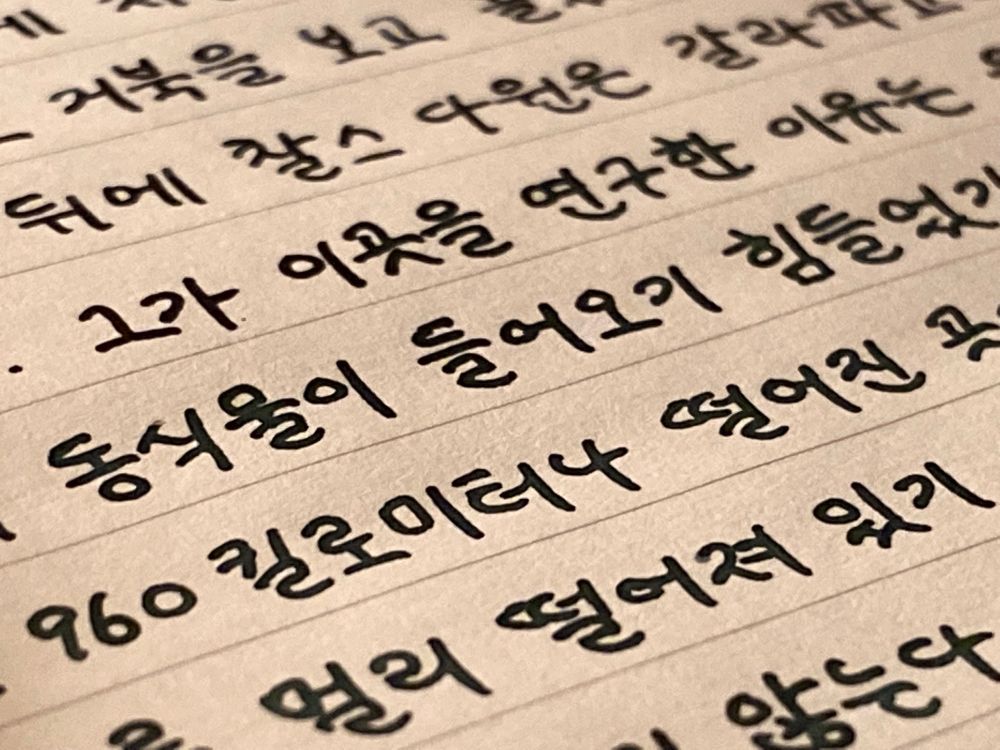 거북을 보고
뒤에 찰스 다윈은 갈라파고
그가 이곳을 연구한 이유는
동식물이 들어오기 힘들었기
960 킬로미터나 떨어진 곳
멀리 떨어져 있기
않는다